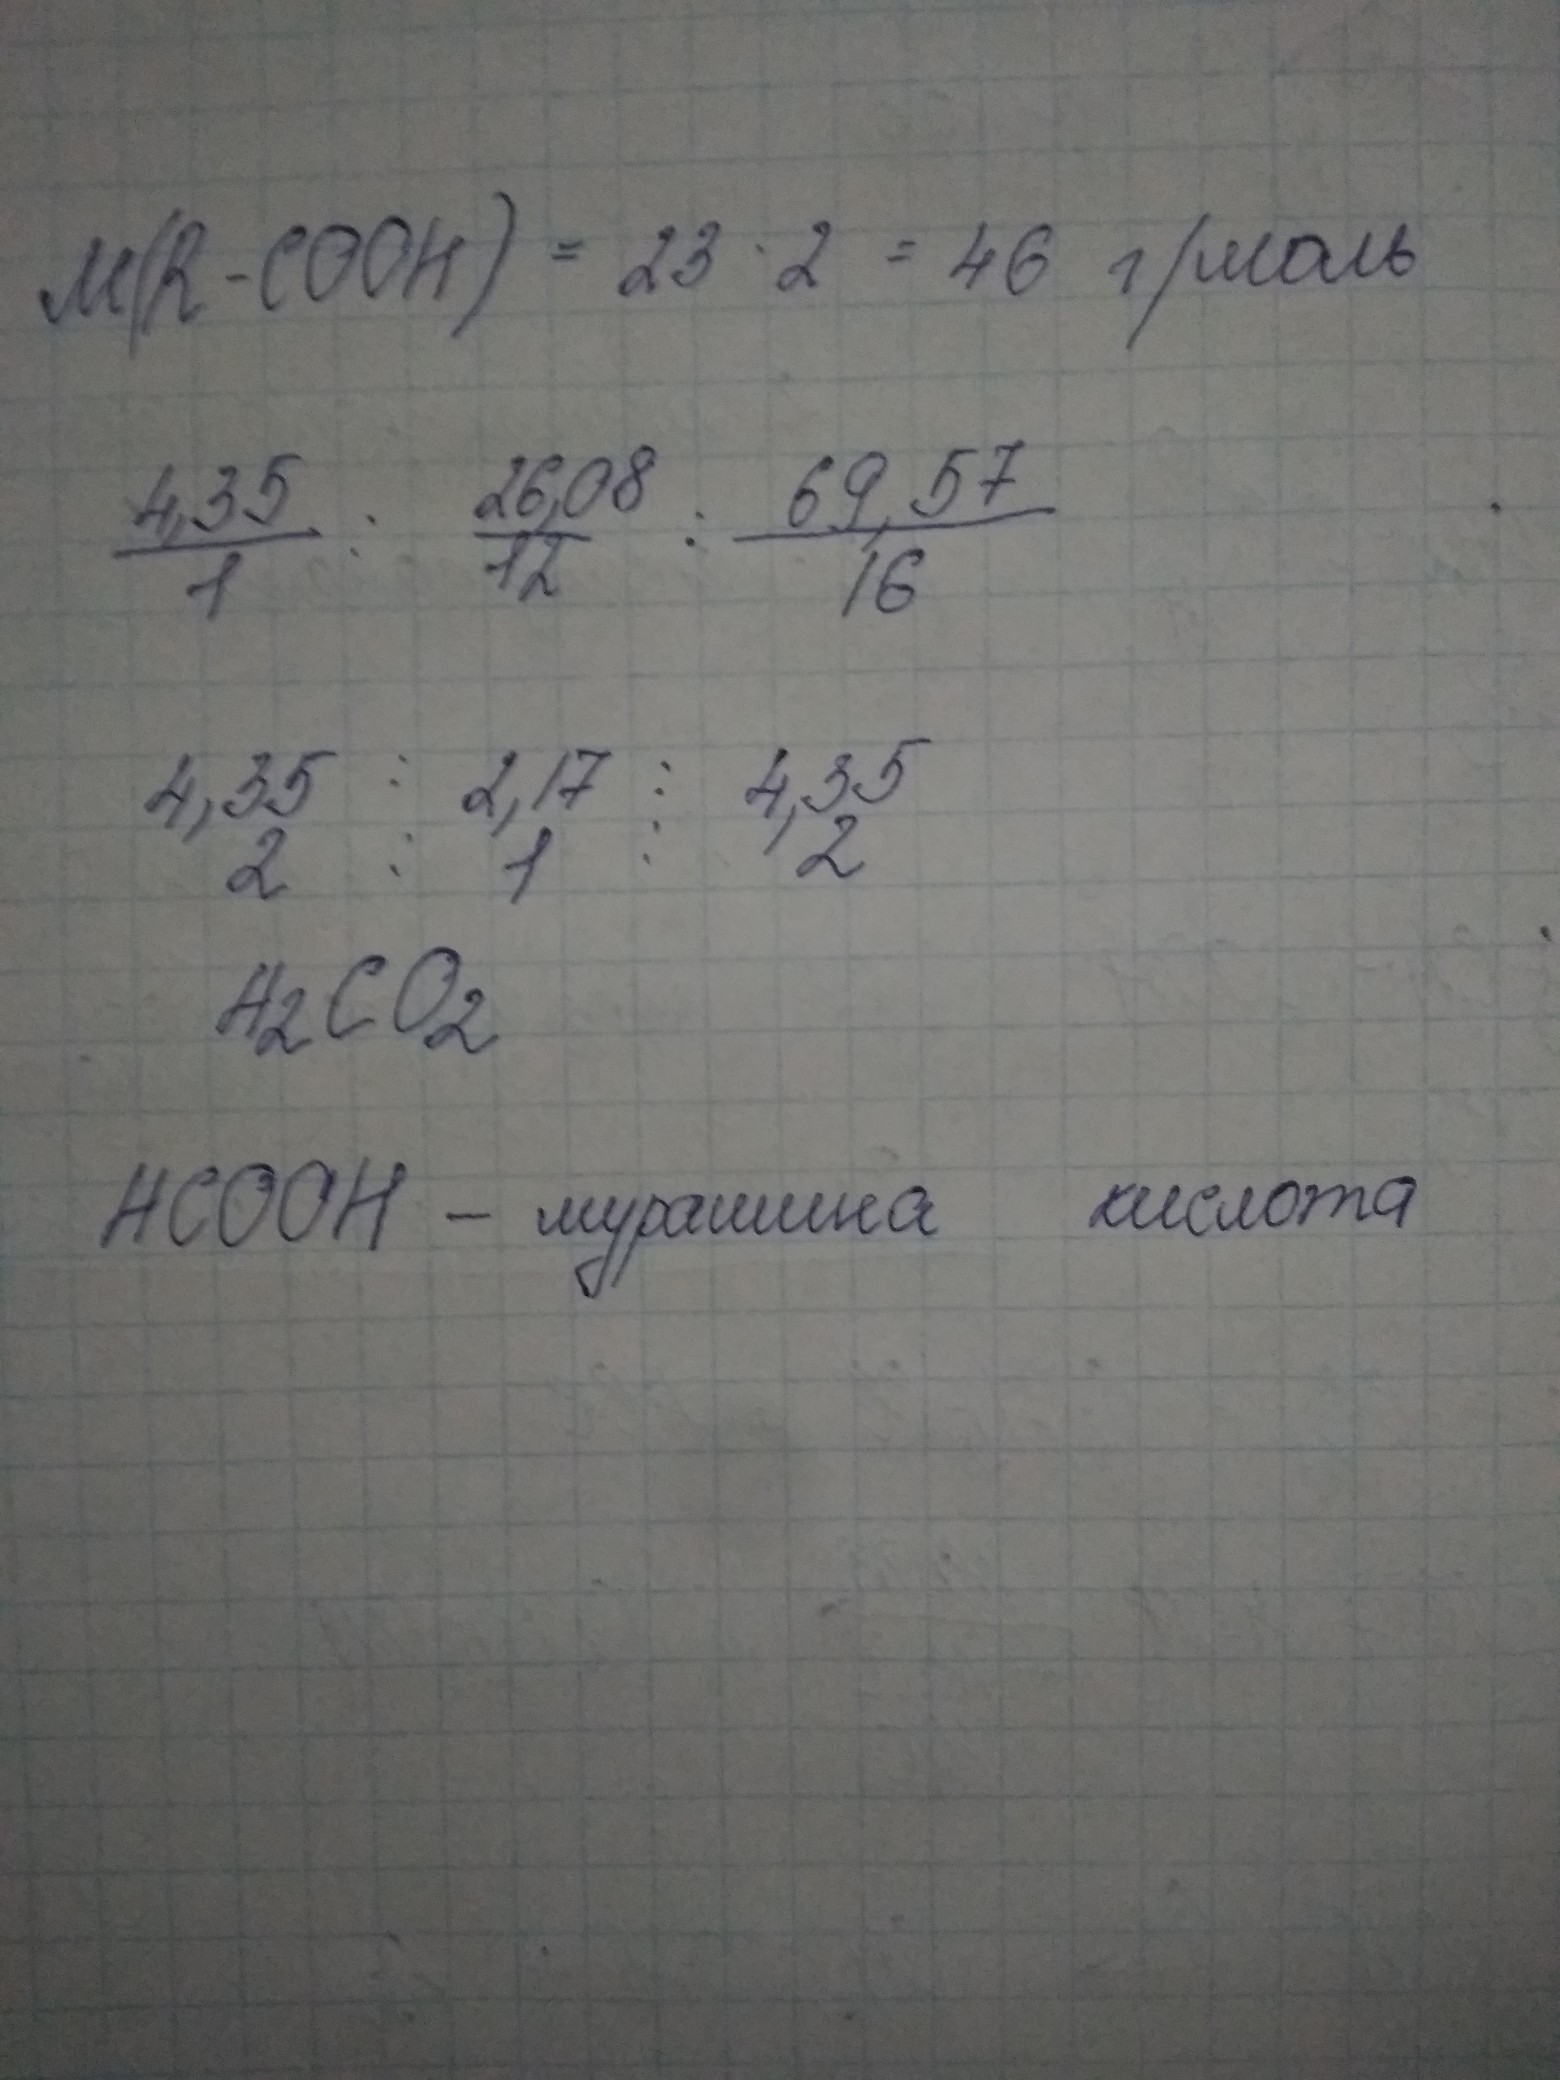 M(R-COOH) = 23 · 2 = 46 г/моль
4,35/1 : 26,08/12 : 69,57/16
4,35 : 2,17 : 4,35
2 : 1 : 2
H₂CO₂
HCOOH – мурашина кислота